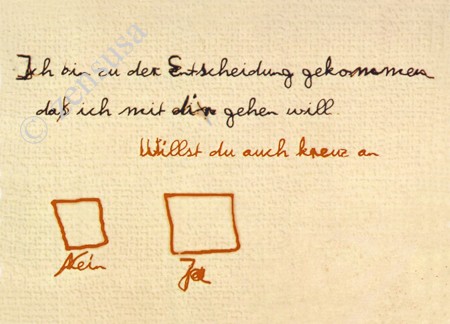 © zensusa
Ich bin zu der Entscheidung gekommen
daß ich mit dir gehen will
Willst du auch kreuz an
Nein Ja